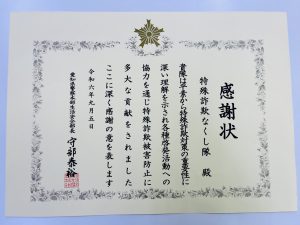 感謝状
特殊詐欺なくし隊 殿
貴隊は平素から特殊詐欺対策の重要性に
深い理解を示され各種啓発活動への
協力を通じ特殊詐欺被害防止に
多大な貢献をされました
ここに深く感謝の意を表します
令和六年九月五日
愛知県警察本部生活安全部長
守部泰裕